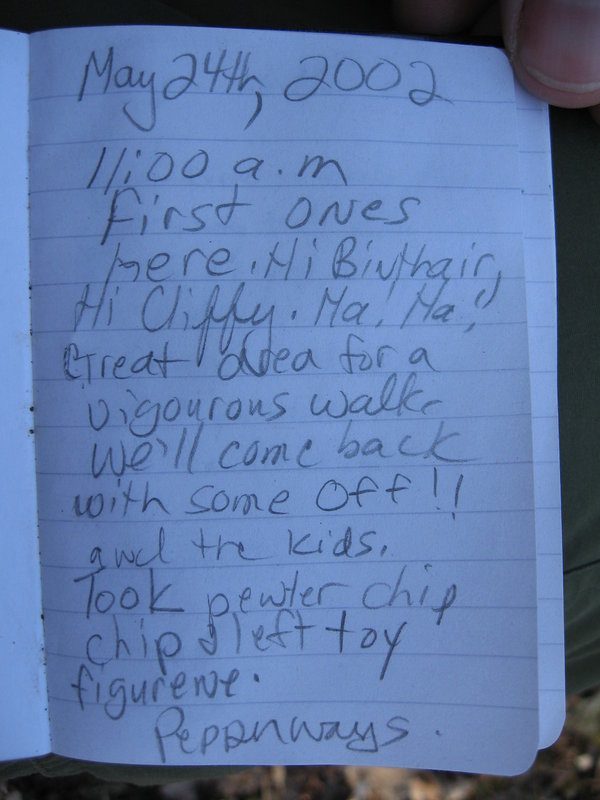 May 24th, 2002
11:00 a.m
first ones
here. Hi
Hi Cliffy. Ha! Ha!
Great area for a
vigourous walk.
We'll come back
with some Off!!
and the kids.
Took pewter chip
chip & left toy
figurene.